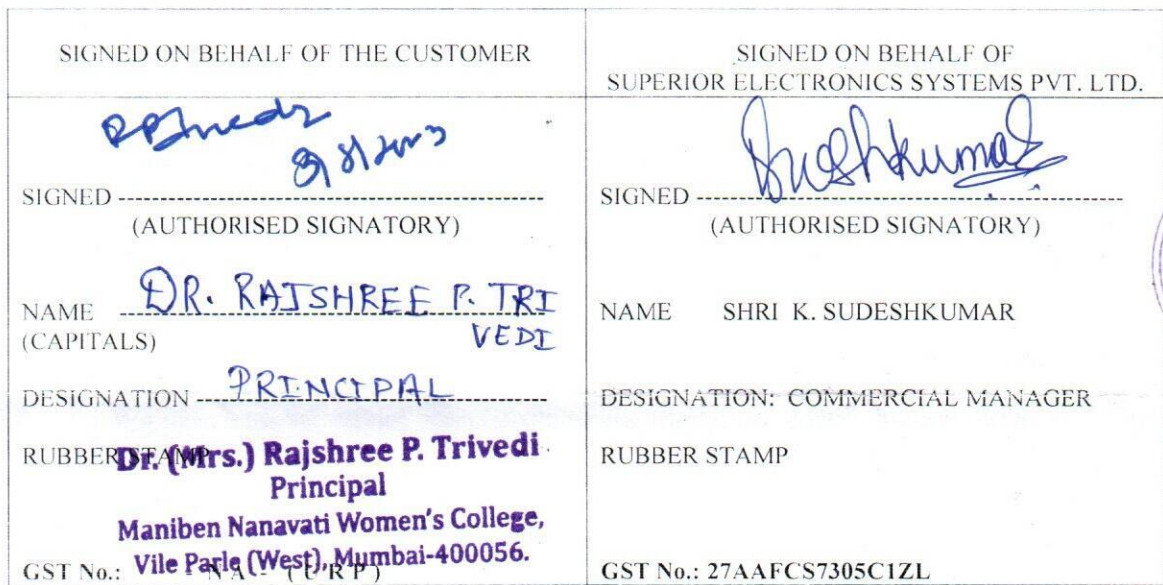 SIGNED ON BEHALF OF THE CUSTOMER
SIGNED
(AUTHORISED SIGNATORY)
NAME DR. RAJSHREE P. TRI
VEDI
(CAPITALS)
DESIGNATION PRINCIPAL
RUBBER STAMP
Dr. (Mrs.) Rajshree P. Trivedi
Principal
Maniben Nanavati Women's College,
Vile Parle (West), Mumbai-400056.
GST No.: NA - (URP)
SIGNED ON BEHALF OF
SUPERIOR ELECTRONICS SYSTEMS PVT. LTD.
Sudeshkumar
SIGNED
(AUTHORISED SIGNATORY)
NAME SHRI K. SUDESHKUMAR
DESIGNATION: COMMERCIAL MANAGER
RUBBER STAMP
GST No.: 27AAFCS7305C1ZL